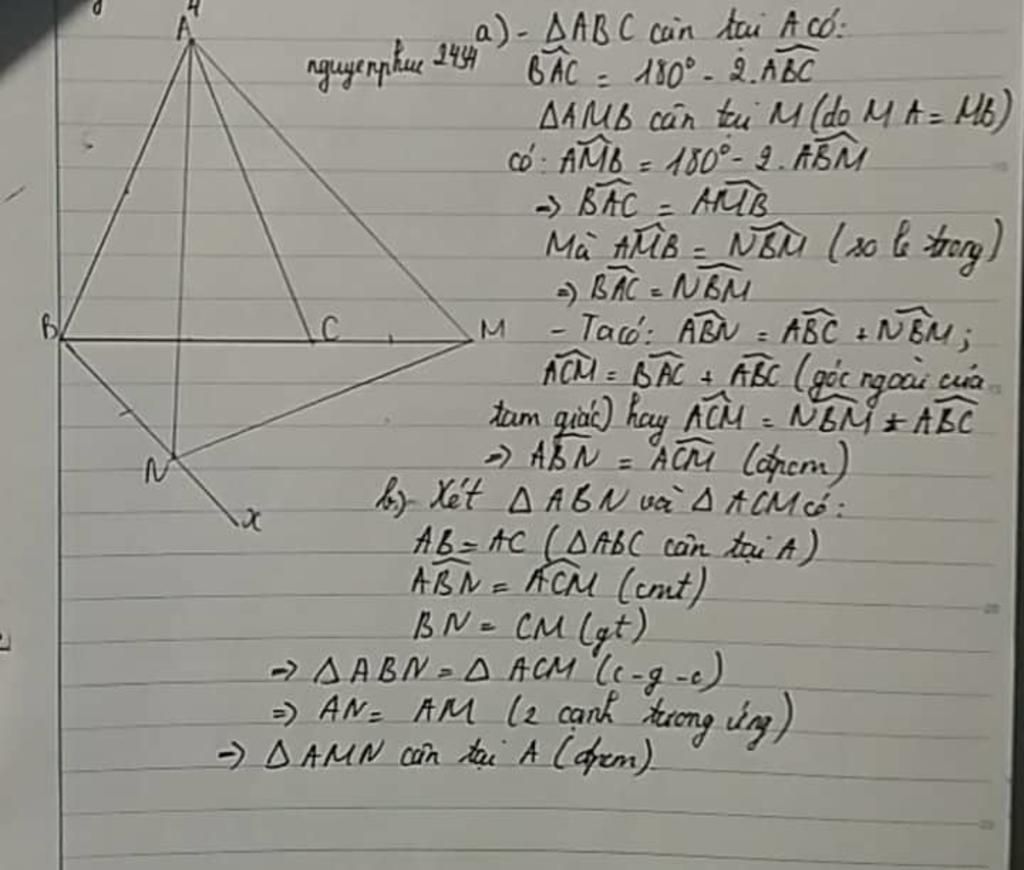 A
B
C
M
N
x
nguyenphuc 2454
a) - ΔABC cân tại A có:
\widehat{BAC} = 180° - 2.\widehat{ABC}
ΔAMB cân tại M (do MA = MB)
có: \widehat{AMB} = 180° - 2.\widehat{ABM}
→ \widehat{BAC} = \widehat{AMB}
Mà \widehat{AMB} = \widehat{NBM} (so le trong)
=> \widehat{BAC} = \widehat{NBM}
- Ta có: \widehat{ABN} = \widehat{ABC} + \widehat{NBM};
\widehat{ACM} = \widehat{BAC} + \widehat{ABC} (góc ngoài của
tam giác) hay \widehat{ACM} = \widehat{NBM} + \widehat{ABC}
=> \widehat{ABN} = \widehat{ACM} (đpcm)
b) - Xét ΔABN và ΔACM có:
AB = AC (ΔABC cân tại A)
\widehat{ABN} = \widehat{ACM} (cmt)
BN = CM (gt)
=> ΔABN = ΔACM (c-g-c)
=> AN = AM (2 cạnh tương ứng)
=> ΔAMN cân tại A (đpcm)